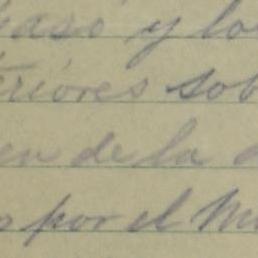 pasó y lo
teriores sob
en de la
s por el Mu